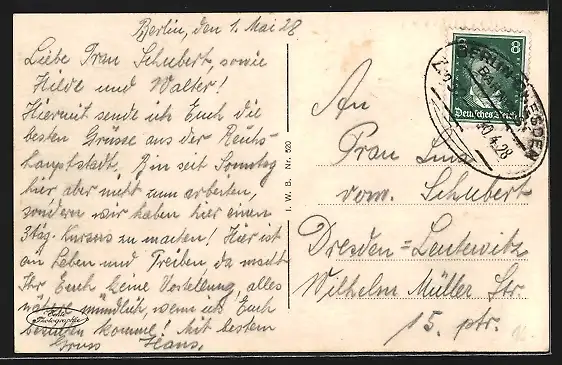 Berlin, den 1. Mai 28
Liebe Frau Schubert, sowie
Hilde und Walter!
Hiermit sende ich Euch die
besten Grüsse aus der Reichs-
hauptstadt. Bin seit Sonntag
hier aber nicht zum arbeiten,
sondern wir haben hier einen
3täg. Kursus zu machen! Hier ist
ein Leben und Treiben da macht
Ihr Euch keine Vorstellung, alles
nähere mündlich, wenn ich Euch
besuchen komme! Mit bestem
Gruss Hans.
Photographie
I. W. B. Nr. 520
8
Deutsches Reich
BERLIN-DRESDEN
30.4.28
An
Frau Lina
vorw. Schubert
Dresden=Leutewitz
Wilhelm Müller Str
15. ptr.